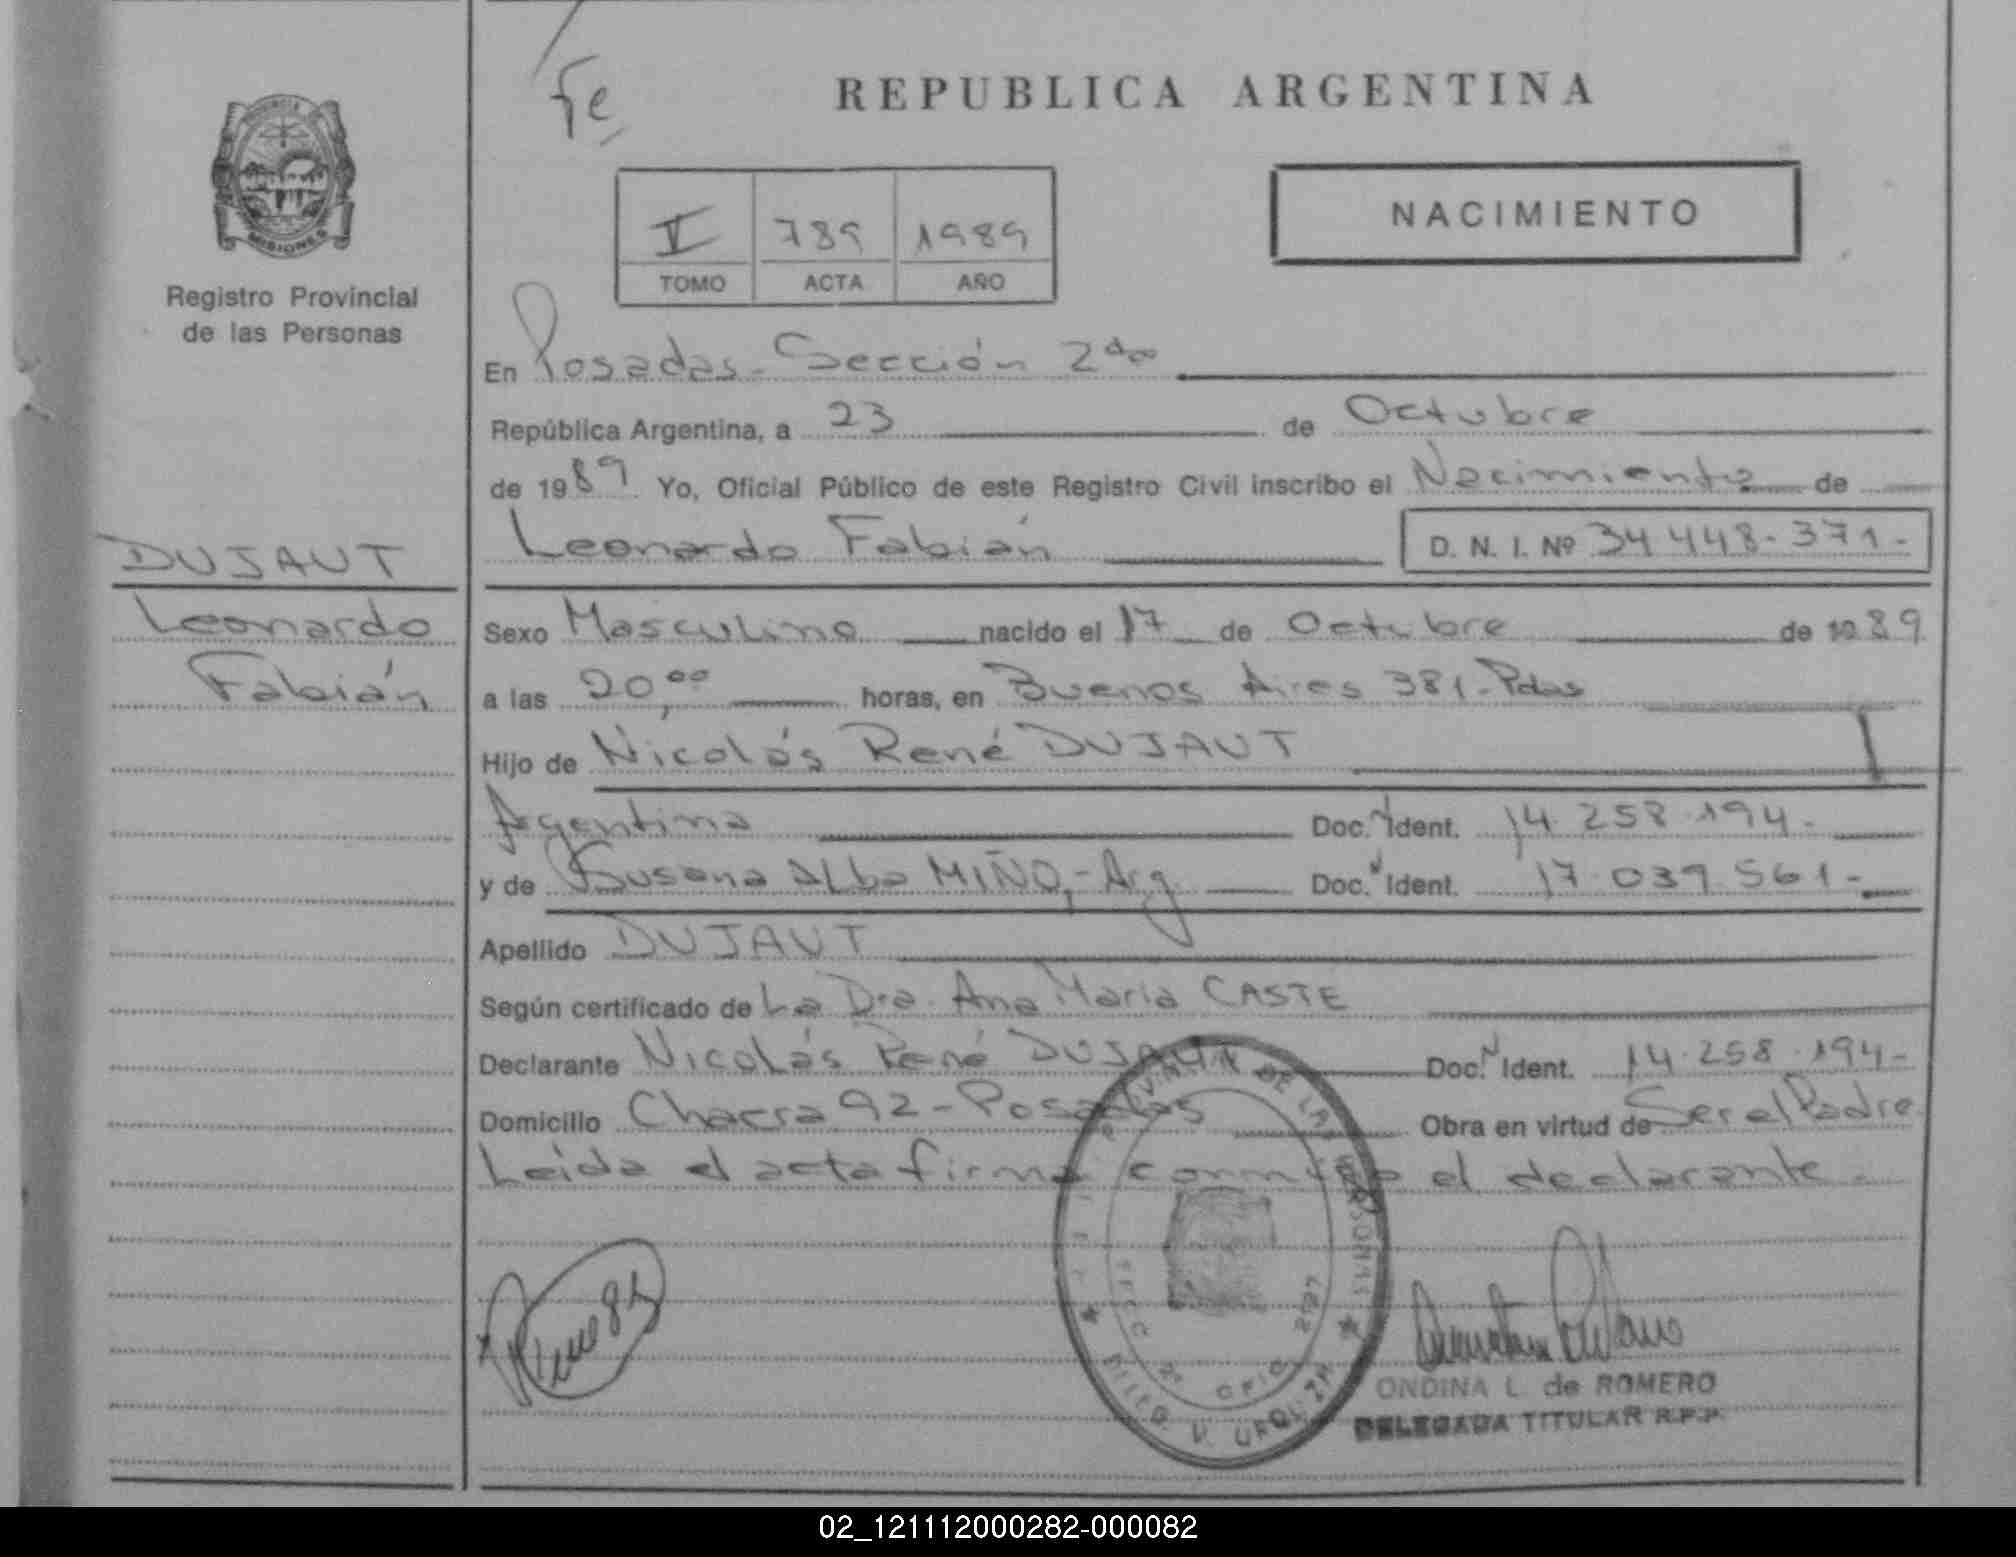 Fe
REPUBLICA ARGENTINA
PROVINCIA
MISIONES
Registro Provincial
de las Personas
V 789 1989
TOMO ACTA AÑO
NACIMIENTO
En Posadas - Sección 2da
República Argentina, a 23 de Octubre
de 1989 Yo, Oficial Público de este Registro Civil inscribo el Nacimiento de
Leonardo Fabián D. N. I. Nº 34 448-371-
DUJAUT
Leonardo
Fabián
Sexo Masculino nacido el 17 de Octubre de 1989
a las 20,00 horas, en Buenos Aires 381-Pdas
Hijo de Nicolás René DUJAUT
Argentina Doc. Ident. 14.258.194-
y de Susana Alba MIÑO,- Arg. Doc. Ident. 17.039.561-
Apellido DUJAUT
Según certificado de La Dra. Ana Maria CASTE
Declarante Nicolás René DUJAUT Doc. Ident. 14.258.194-
Domicilio Chacra 92 - Posadas Obra en virtud de Ser el Padre
Leida el acta firma conmigo el declarante.
DE LAS PERSONAS
SECC. 2ª OFIC.
VILLA URQUIZA
ONDINA L. de ROMERO
DELEGADA TITULAR R.P.P.
02_121112000282-000082